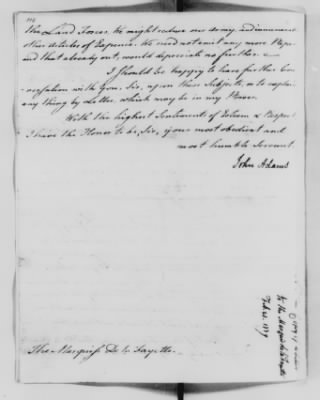 the Land Forces. We might reduce our Army and innumerable
other Articles of Expence. We need not emit any more Paper
and that already out, would depreciate no further.
I Should be happy to have further Con
versation with you, Sir, upon these Subjects, or to explain
any thing by Letter, which may be in my Power.
With the highest Sentiments of Esteem & Respect
I have the Honor to be, Sir, your most obedient and
most humble Servant
John Adams
The Marquiss De la Fayette.
To the Marquis de la Fayette
Feb. 21. 1779